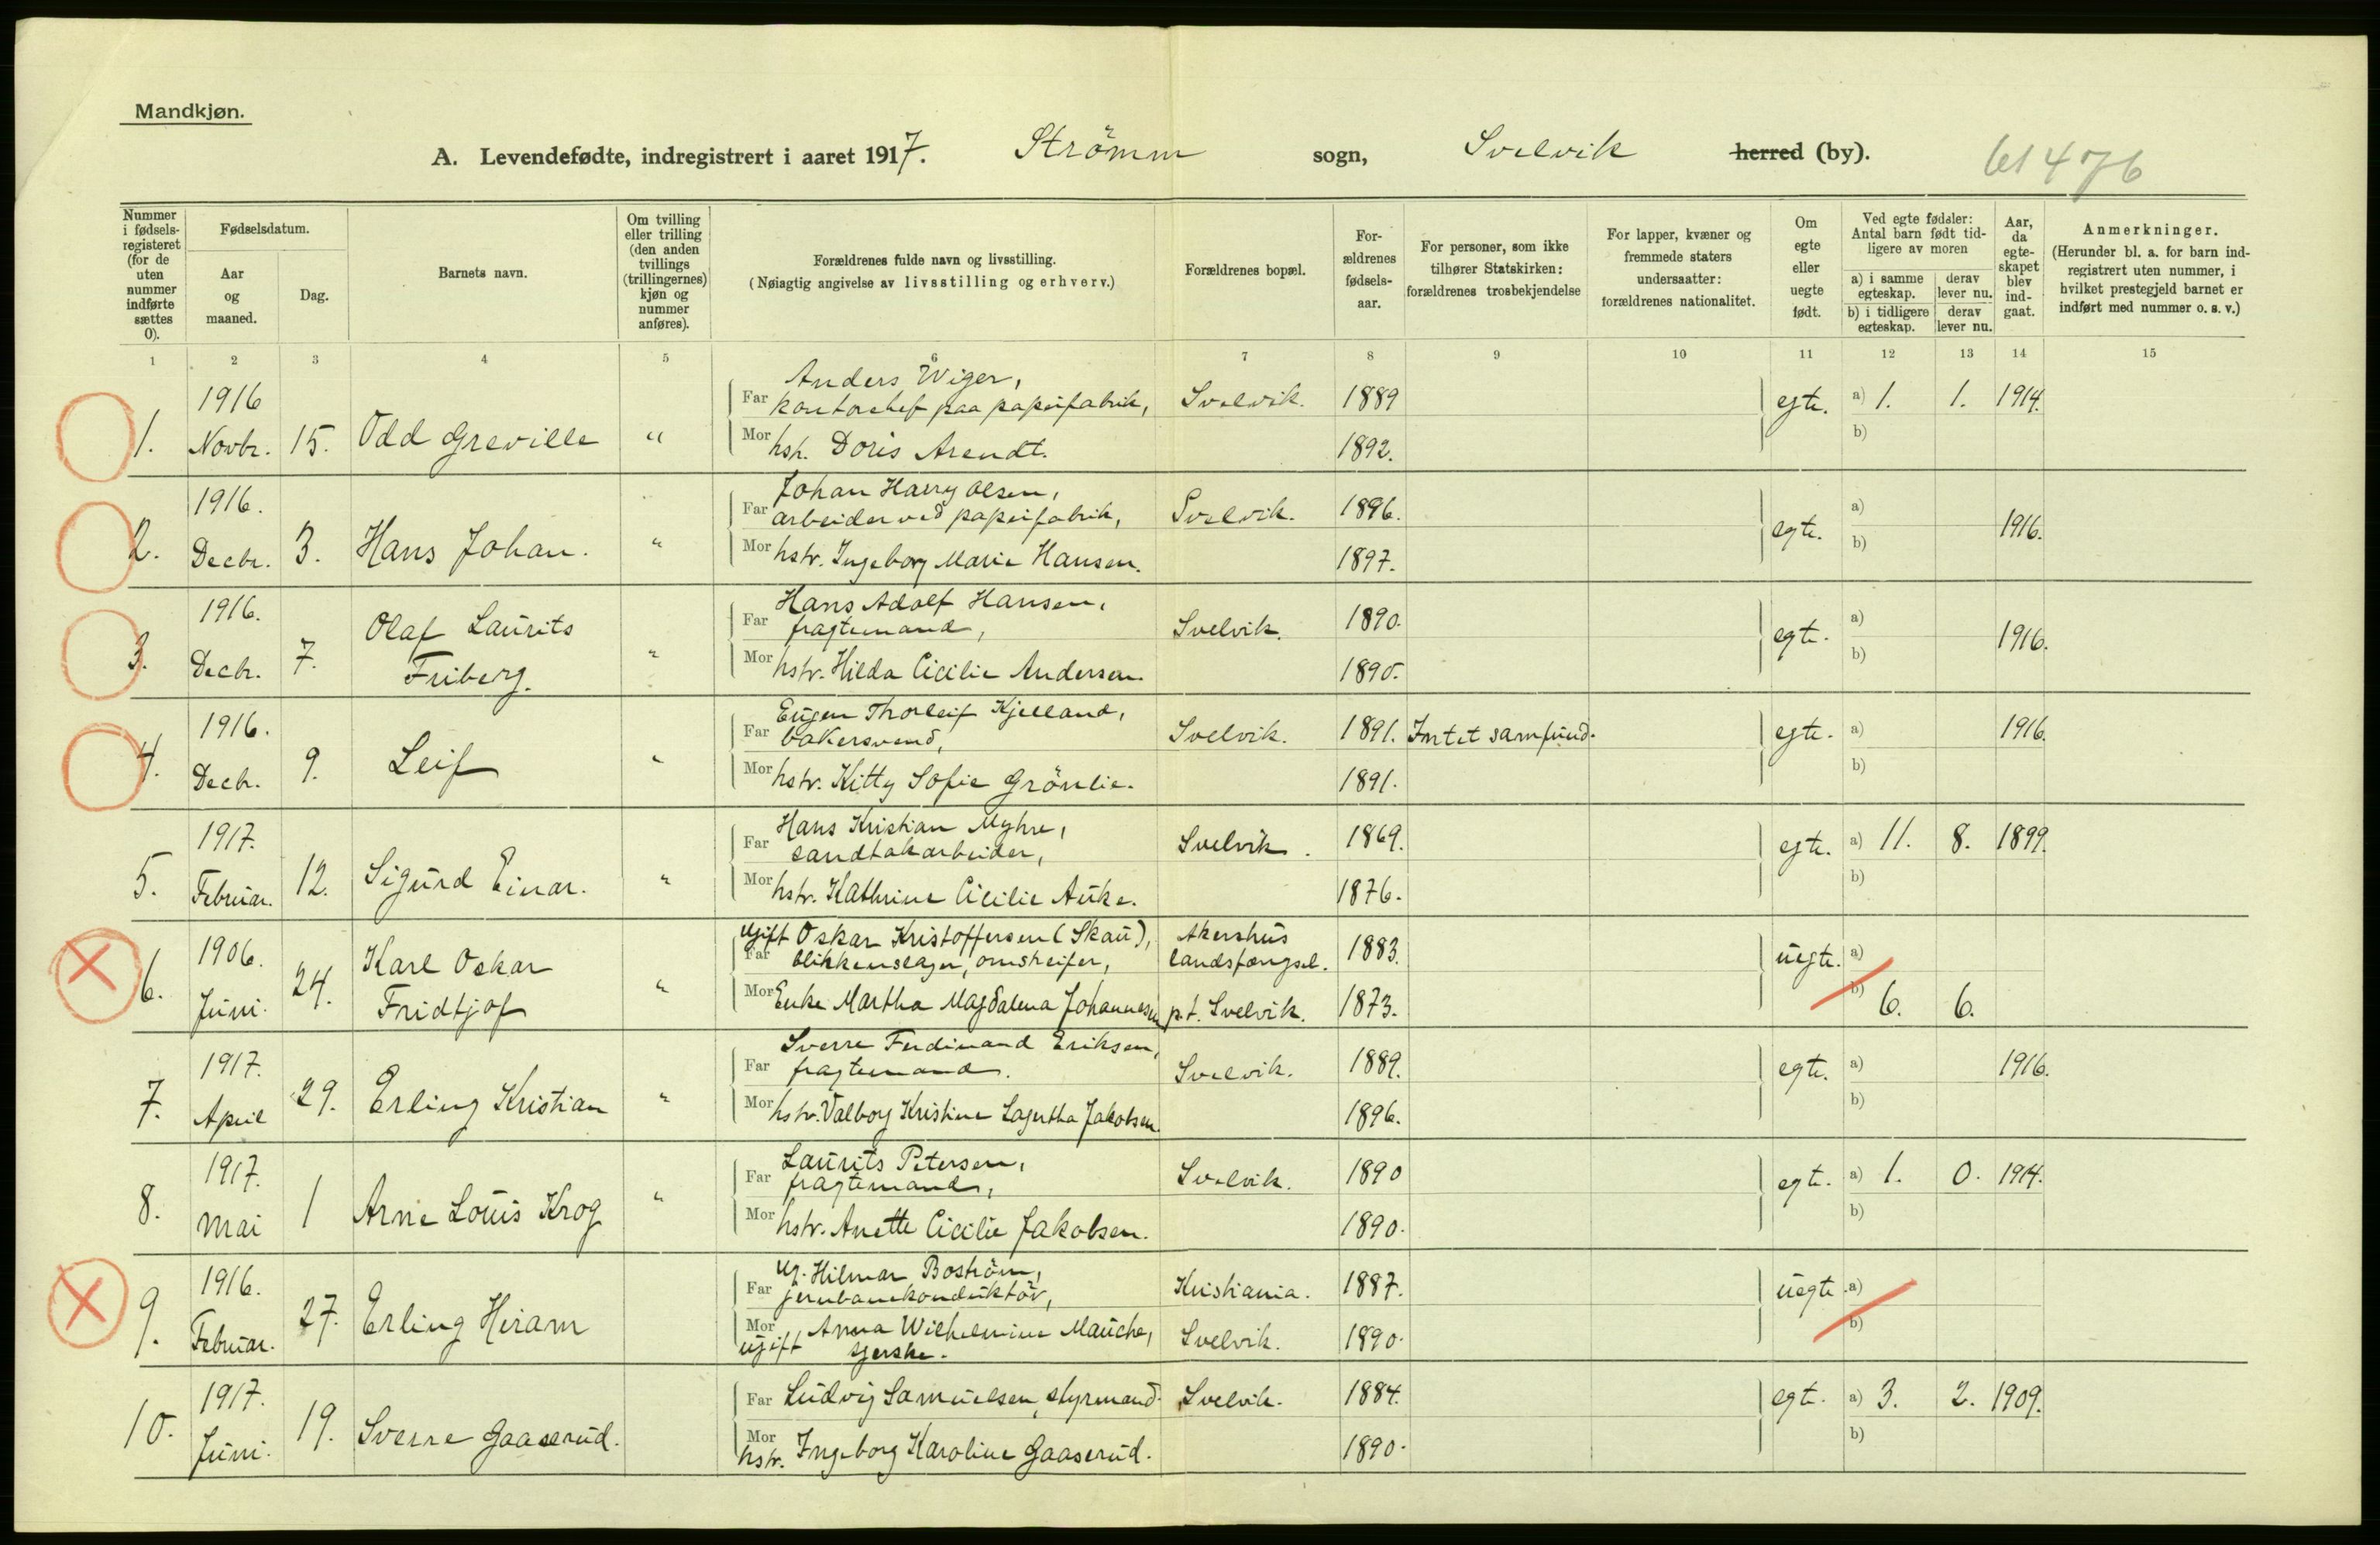 Mandkjøn.
A. Levendefødte, indregistrert i aaret 1917. Strömm sogn, Svelvik herred (by).
476
Nummer i fødselsregisteret (for de uten nummer indførte sættes 0).
Fødselsdatum.
Aar og maaned.
Dag.
Barnets navn.
Om tvilling eller trilling (den anden tvillings (trillingernes) kjøn og nummer anføres).
Forældrenes fulde navn og livsstilling.
(Nøiagtig angivelse av livsstilling og erhverv.)
Forældrenes bopæl.
For-ældrenes fødsels-aar.
For personer, som ikke tilhører Statskirken: forældrenes trosbekjendelse
For lapper, kvæner og fremmede staters undersaatter: forældrenes nationalitet.
Om egte eller uegte født.
Ved egte fødsler: Antal barn født tid-ligere av moren
a) i samme egteskap.
derav lever nu.
b) i tidligere egteskap.
derav lever nu.
Aar, da egte-skapet blev ind-gaat.
Anmerkninger.
(Herunder bl. a. for barn ind-registrert uten nummer, i hvilket prestegjeld barnet er indført med nummer o. s. v.)
1 2 3 4 5 6 7 8 9 10 11 12 13 14 15
1916
Anders Wiger,
Far kontorchef paa papirfabrik, Svelvik. 1889 egte. a) 1. 1. 1914.
1. Novbr. 15. Odd Greville "
Mor hstr. Doris Arendt. 1892. b)
1916.
Johan Harry Olsen,
Far arbeider ved papirfabrik, Svelvik. 1896. egte. a) 1916.
2. Decbr. 3. Hans Johan. "
Mor hstr. Ingeborg Marie Hansen. 1897. b)
1916.
Hans Adolf Hansen,
Far fragtemand, Svelvik. 1890. egte. a) 1916.
3. Decbr. 7. Olaf Laurits Friberg. "
Mor hstr. Hilda Cicilie Andersen. 1890. b)
1916.
Eugen Thorleif Kjelland,
Far bakersvend, Svelvik. 1891. Intet samfund. egte. a) 1916.
4. Decbr. 9. Leif "
Mor hstr. Kitty Sofie Grönlie. 1891. b)
1917.
Hans Kristian Myhre,
Far sandtakarbeider, Svelvik. 1869. egte. a) 11. 8. 1899.
5. Februar. 12. Sigurd Einar. "
Mor hstr. Kathrine Cicilie Auke. 1876. b)
1906.
Ugift Oskar Kristoffersen (Skau), Akershus
Far blikkenslager, omstreifer, landsfængsel. 1883. uegte. a)
6. Juni. 24. Karl Oskar Fridtjof "
Mor Enke Martha Magdalena Johannesen p.t. Svelvik. 1873. b) 6. 6.
1917.
Sverre Ferdinand Eriksen,
Far fragtemand. Svelvik. 1889. egte. a) 1916.
7. April 29. Erling Kristian "
Mor hstr. Valborg Kristine Lagertha Jakobsen. 1896. b)
1917.
Laurits Petersen,
Far fragtemand, Svelvik. 1890 egte. a) 1. 0. 1914.
8. Mai 1 Arne Louis Krog "
Mor hstr. Anette Cicilie Jakobsen. 1890. b)
1916.
Ug. Hilmar Boström,
Far jernbanekonduktör, Kristiania. 1887. uegte. a)
9. Februar. 27. Erling Hiram
Mor ugift Anna Wilhelmine Mauche, Svelvik. 1890. b)
syerske.
1917.
Far Ludvig Samuelsen, styrmand. Svelvik. 1884. egte. a) 3. 2. 1909.
10. Juni. 19. Sverre Gaaserud.
Mor hstr. Ingeborg Karoline Gaaserud. 1890. b)